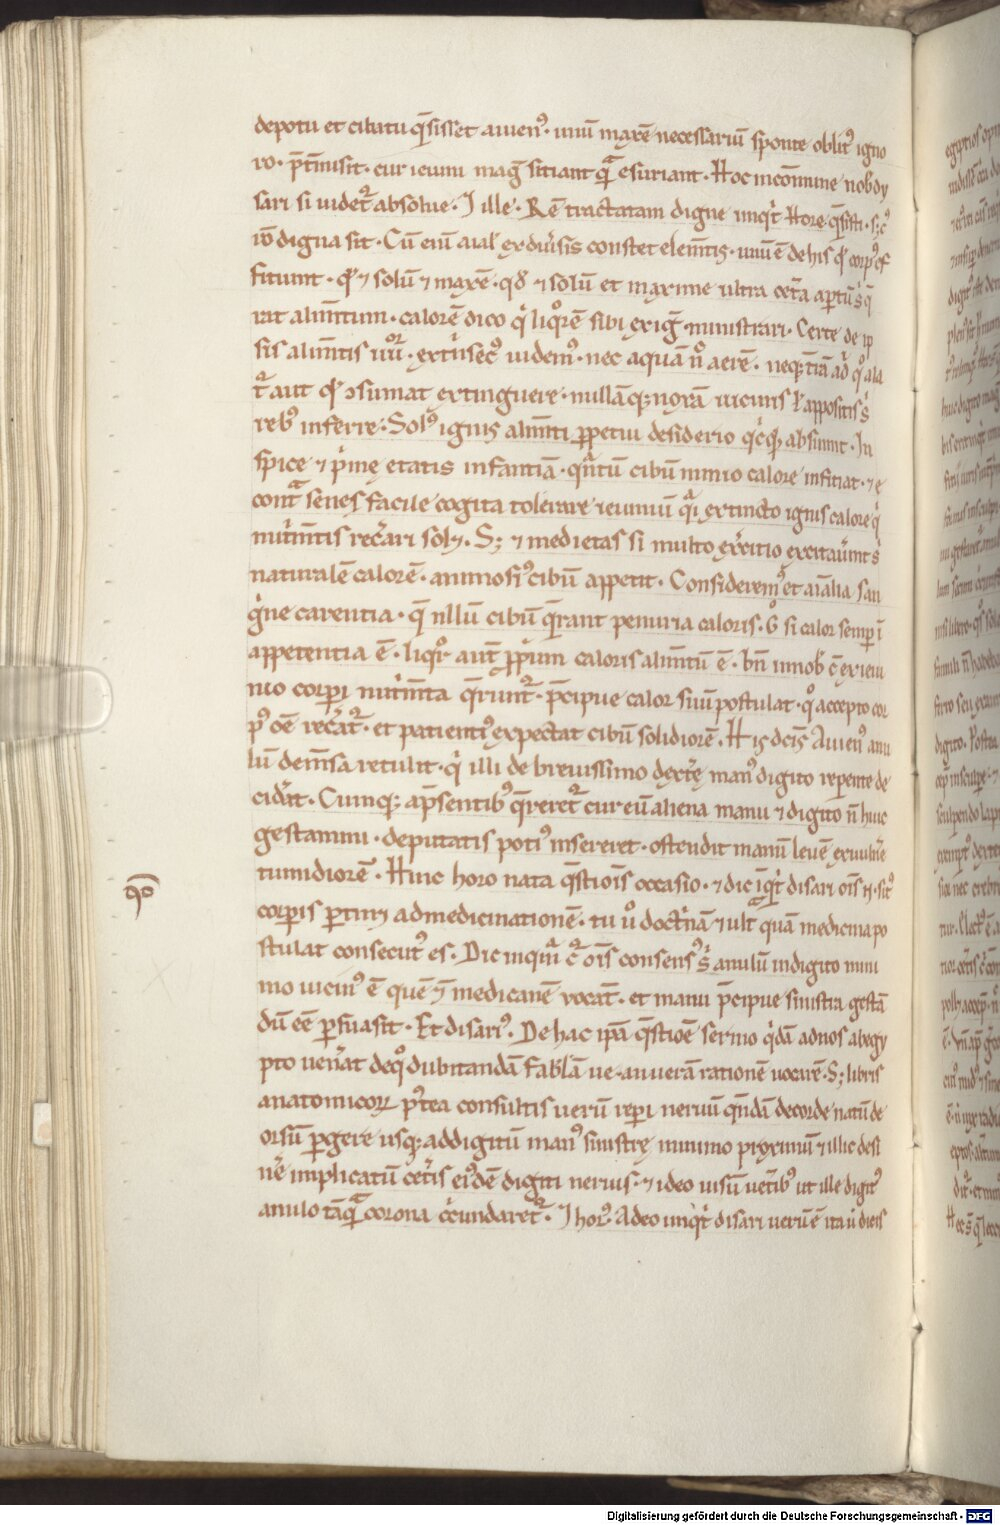 depotu et cibatu q̄sisset auien᷒· unū maxīe necessariū sponte oblit᷒ igno
ro· p̄t̄misit· cur ieiuni maḡ sitiant q̄ᵃ esuriant· Hoc incōmune nob̄ dy
sari si uidet᷑ absolue· J ille· Rē tractatam digne inqⁱt Hore q̄sisti· s; c᷒
rō digna sit· Cū eni᷒ aial̄ ex diu̓sis constet elem̄tis· unū ē de his q̨ corp᷒ ef
ficiunt· q̨ ⁊ solū ⁊ maxīe· qđ ⁊ solū et maxime ultra cet̓a aptū s̓ q̄
rat alim̄tum· calorē dico qⁱ liq̊rē sibi exig̓ ministrari· Certe de ip
sis alim̄tis iiiiᵒʳ· ext̓nsec᷒ uidem᷒· nec aquā n̊ aerē· neq; t̄rā ad̓ q̊ ala
t᷑ aut q̨ ↄsumat extinguere· nullāq; noxā uicinis ł appositis s̓
reb᷒ inferre· Sol᷒ ignis alim̄ti ꝑpetui desiderio qⁱcq̨ absumit· In
spice ⁊ pⁱmę etatis infantiā· q̄ᵃtū cibū nimio calore inficiat· ⁊ e
contᵃ senes facile cogita tolerare ieiuniū qᵃi extincto ignis calore qⁱ
nutⁱm̄tis rec̓ari sol;· S; ⁊ medietas si multo ex̓citio excitau̓int s̓
naturalē calorē· animosi᷒ cibū appetit· Considerem᷒ et aīalia san
gⁱne carentia· q̄ nllū cibū q̄rant penuria caloris· G̊ si calor semp̄ ī
appetentia ē· liqᵒr aūt ꝓpⁱum caloris alim̄tū ē· bn̄ ī nob̄ c̄ ex ieiu
nio corpi nutⁱm̄ta q̄runt᷑· p̄cipue calor suū postulat· q̊ accepto cor
p᷒ oē rec̓at᷑· et patienti᷒ expectat cibū solidiorē· Hi; dc̄is Auien᷒ anu
lū dem̄sa retulit· qⁱ illi de breuissimo dext̓ę man᷒ digito repente de
cid̓at· Cumq; ap̄sentib᷒ q̄reret᷑ cur eū aliena manu ⁊ digito n̄ huic
gestamini· deputatis poti᷒ insereret· ostendit manū leuē ex uuln̓e
tumidiorē· Hinc horo nata q̄stiois occasio· ⁊ dic īqⁱt disari oīs n̄· sit᷒
corpis ꝑtin; ad medicinationē· tu ů doctⁱnā ⁊ ult̓ quam medicina po
stulat consecut᷒ es· Dic inquā c᷑ oīs consens᷒ s̓ anulū in digito mini
mo uicin᷒ ē quē ⁊ medicanē vocāt· et manu p̄cipue sinistra gestā
dū eē ꝑsuasit· Et disari᷒· De hac ip̄a q̄stioē sermo qⁱdā ad nos ab egy
pto ven̓at de q̊ dubitandā fab̄lā ue· an uerā rationē uocarē· S; libris
anatomicoꝝ p᷒tea consultis uerū repi neruū q̄ndā de corde natū de
orsū ꝑgere usq; ad digitū man᷒ sinistrę minimo proximū ⁊ illic desi
n̓e implicatū cet̓is ei᷒dē digiti neruis· ⁊ ideo uisū uet̓ib᷒ ut ille digit᷒
anulo tāqᵃ corona cⁱcundaret᷑· J hor᷒· Adeo inqⁱt disari uerū ē ita ů dicis
q̄o
Digitalisierung gefördert durch die Deutsche Forschungsgemeinschaft - DFG